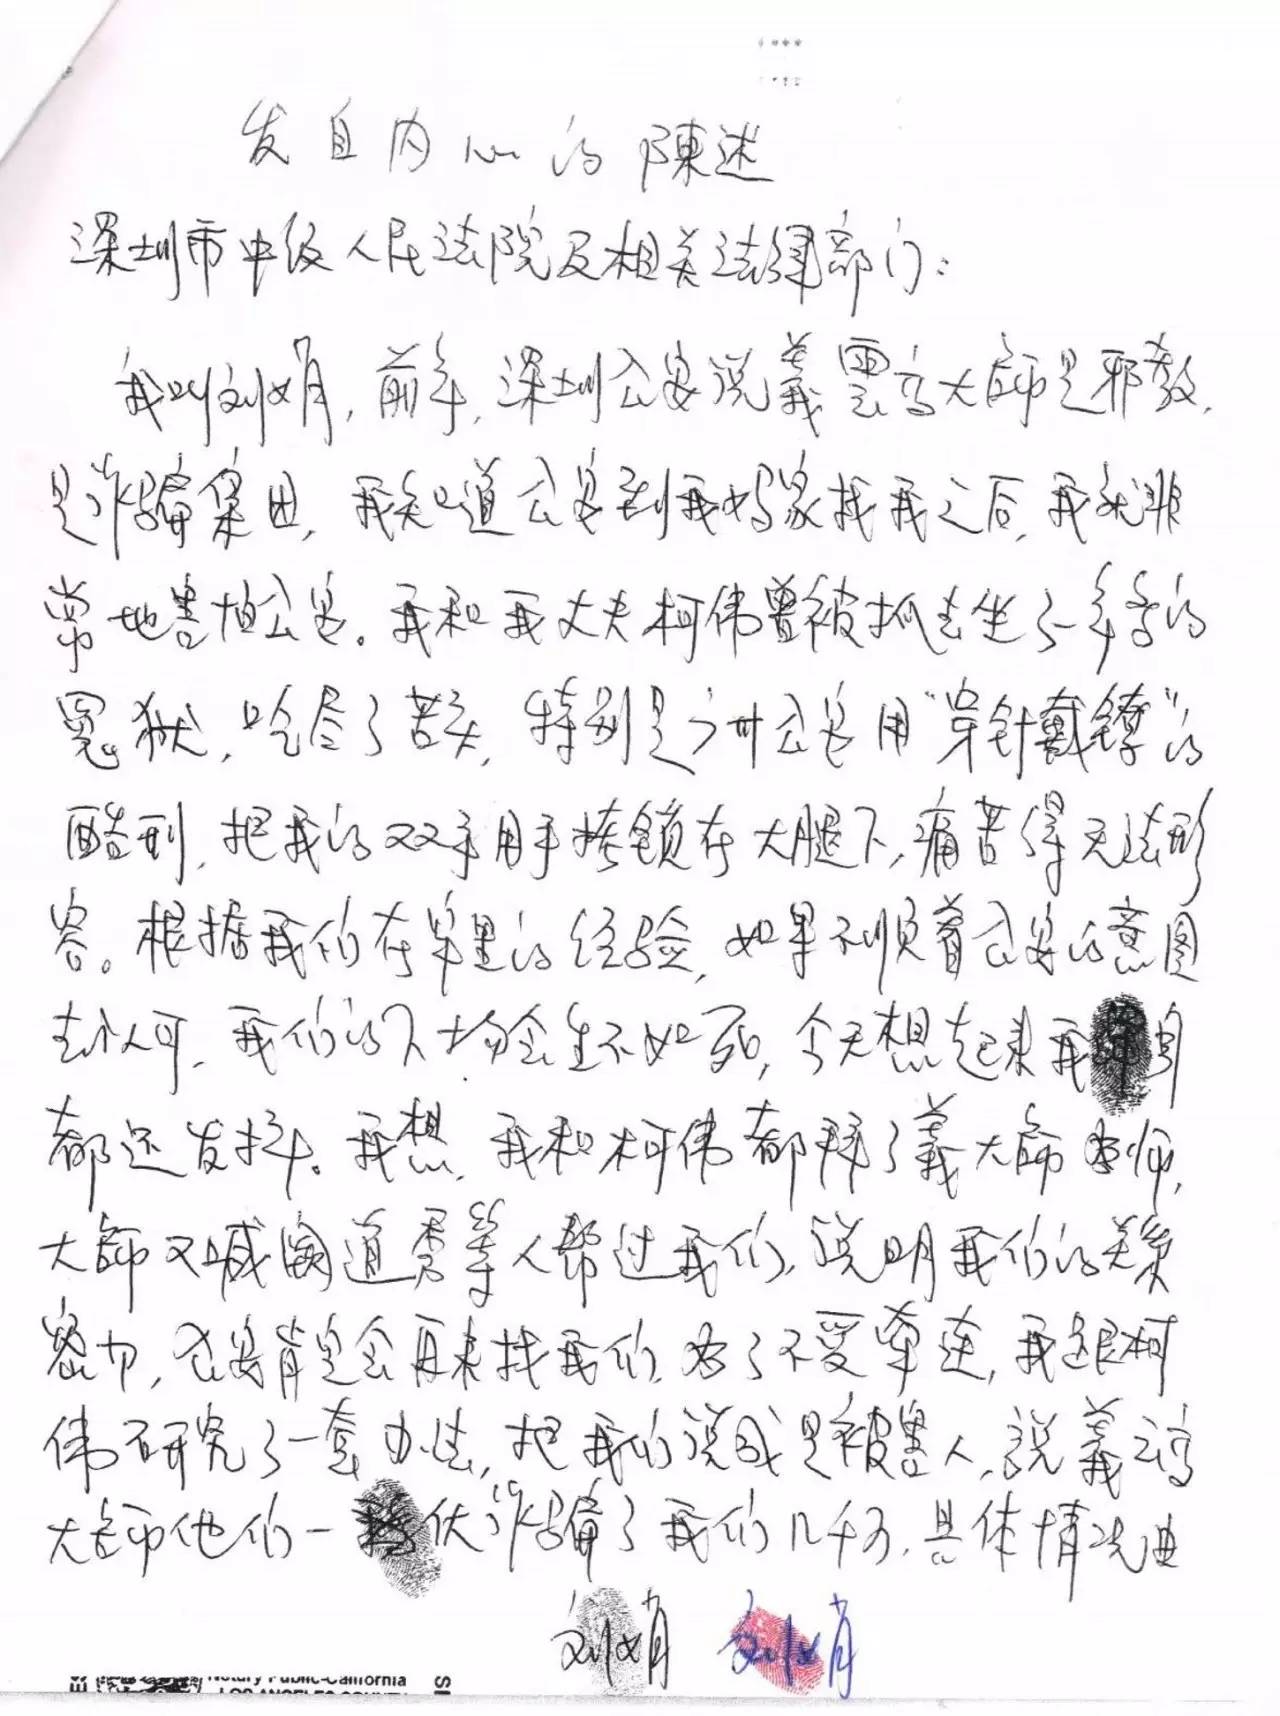 发自内心的陳述
深圳市中级人民法院及相关法律部门:
我叫刘娟,前年,深圳公安说義雲高大師是邪教,
是诈骗集团,我知道公安到我妈家找我之后,我就非
常地害怕公安。我和我丈夫柯伟曾被抓去坐了一年多的
冤狱,吃尽了苦头,特别是广州公安用“穿针戴镣”的
酷刑,把我的双手用手铐锁在大腿下,痛苦得无法形
容。根据我们在牢里的经验,如果不顺着公安的意图
去认可,我们的下场会生不如死,今天想起来我
都还发抖。我想,我和柯伟都拜了義大師 师,
大師又喊 道勇等人帮过我们,说明我们的关系
密切,公安肯定会再来找我们,为了不受牵连,我跟柯
伟研究了一套办法,把我们说成是被害人,説義云高
大師他们一 伙诈骗了我们几千万,具体情况由
刘娟 刘娟
Notary Public-California
LOS ANGELES COUNTY